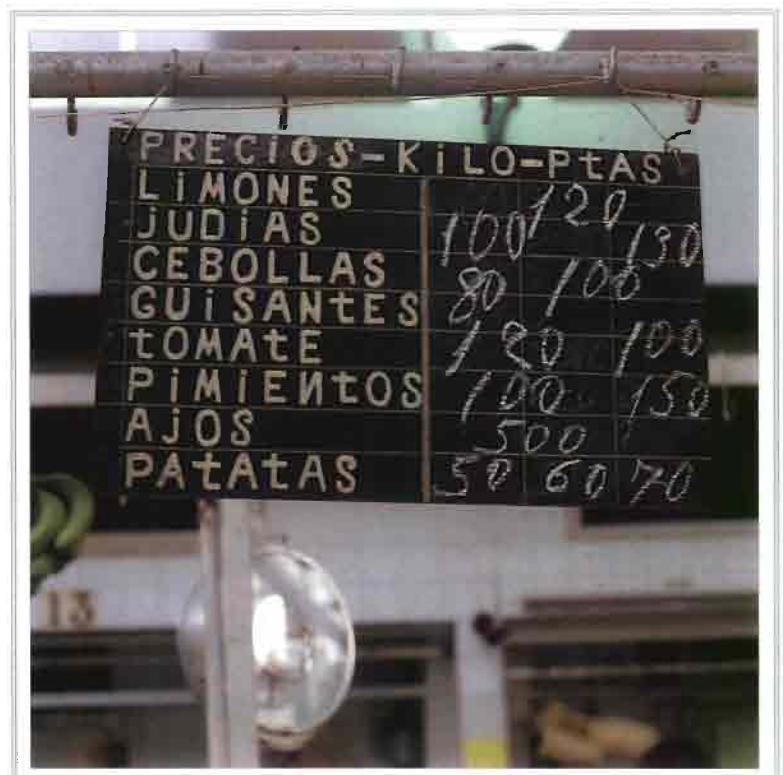 PRECiOS-KiLO-PtAS
LiMONES 120
jUDiAS 100 130
CEBOLLAS 80 100
GUiSANtES
tOMAtE 120 100
PiMiENtOS 100 150
AjOS 500
PAtAtAS 50 60 70
13